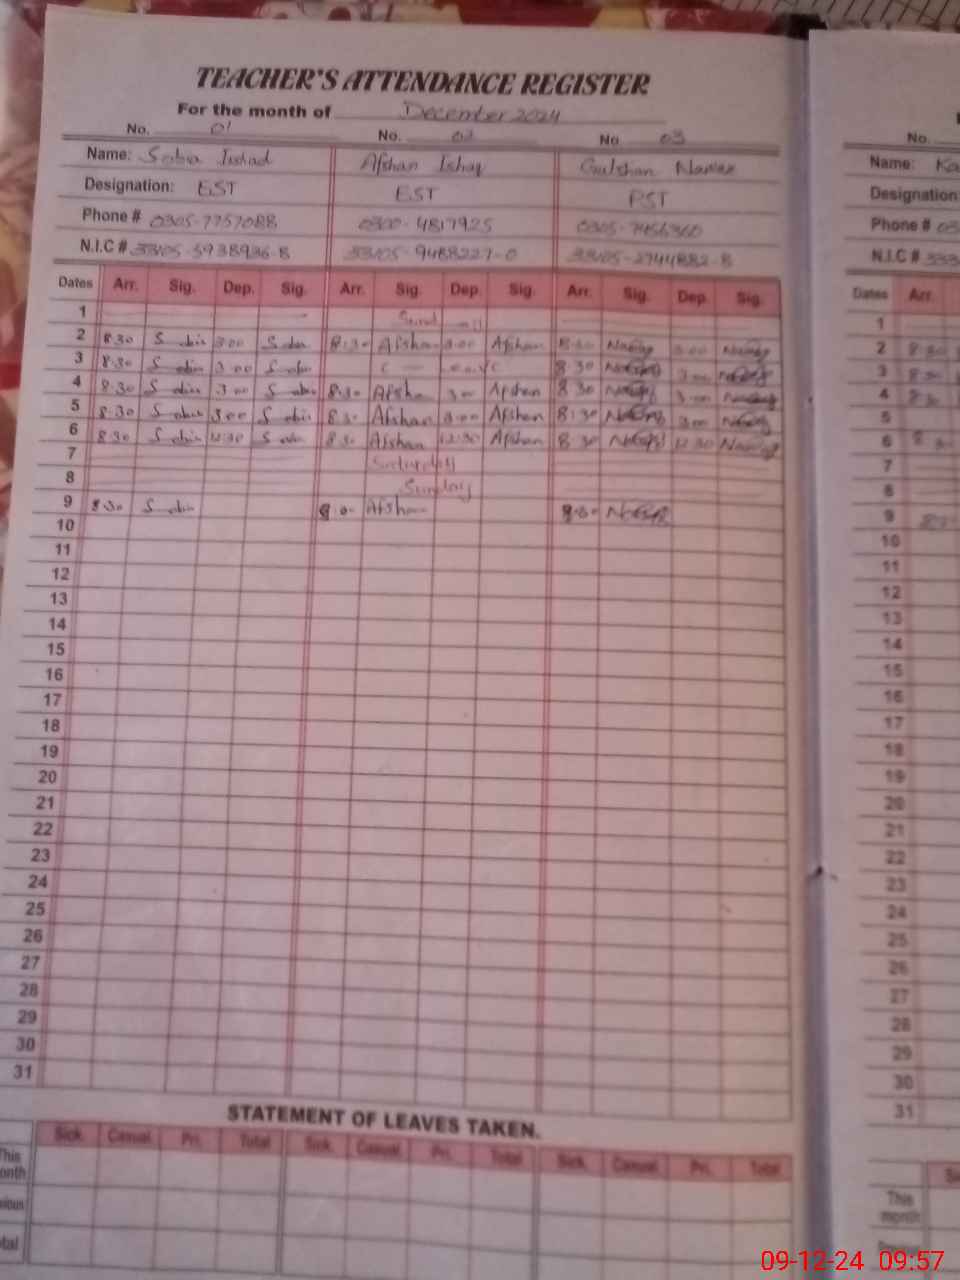 TEACHER'S ATTENDANCE REGISTER
For the month of December 2024
No. 01 No. 02 No 03
Name: Sabia Irshad Afshan Ishaq Gulshan Nawaz
Designation: EST EST PST
Phone # 0305-7757088 0300-4817925 0305-7456360
N.I.C # 33105-5938936-8 33105-9488227-0 33105-2744882-8
Dates Arr. Sig. Dep. Sig. Arr. Sig. Dep. Sig. Arr. Sig. Dep. Sig.
1
2 8:30 3:00 8:30 Afshan 3:00 Afshan 8:30 3:00
3 8:30 3:00 C — Leave 8:30 3:00
4 8:30 3:00 8:30 Afsha 3:00 Afshan 8:30 3:00
5 8:30 3:00 8:30 Afshan 3:00 Afshan 8:30 3:00
6 8:30 12:30 8:30 Afshan 12:30 Afshan 8:30 12:30
7 Saturday
8 Sunday
9 8:30 Afshan 8:30
10
11
12
13
14
15
16
17
18
19
20
21
22
23
24
25
26
27
28
29
30
31
STATEMENT OF LEAVES TAKEN.
Sick. Casual. Pri. Total Sick. Casual. Pri. Total Sick. Casual. Pri. Total
This
month
vious
tal
No.
Name: Ka
Designation
Phone # 03
N.I.C # 333
Dates Arr.
1
2 8:30
3 8:30
4 8:30
5
6 8:30
7
8
9
10
11
12
13
14
15
16
17
18
19
20
21
22
23
24
25
26
27
28
29
30
31
This
month
09-12-24 09:57